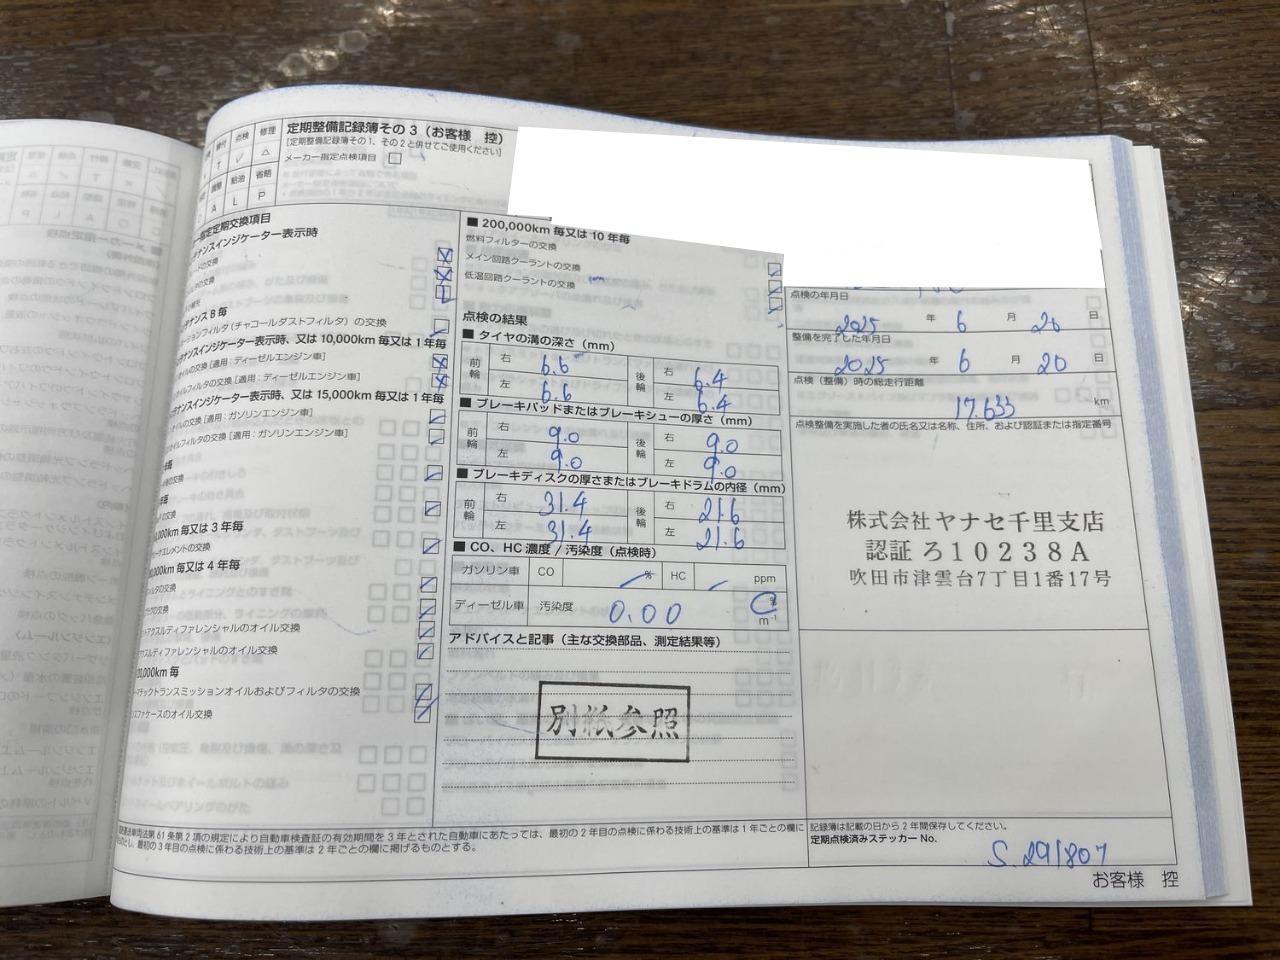 定期整備記録簿その3（お客様 控）
[定期整備記録簿その1、その2と併せてご使用ください]
メーカー指定点検項目
点検 修理
T ✓ △
給油 省略
A L P
定期交換項目
ナンスインジケーター表示時
の交換
ナンス B 毎
ションフィルタ（チャコールダストフィルタ）の交換
ナンスインジケーター表示時、又は 10,000km 毎又は 1 年毎
イルの交換 [適用：ディーゼルエンジン車]
イルフィルタの交換 [適用：ディーゼルエンジン車]
ナンスインジケーター表示時、又は 15,000km 毎又は 1 年毎
ルの交換 [適用：ガソリンエンジン車]
イルフィルタの交換 [適用：ガソリンエンジン車]
の交換
の交換
000km 毎又は 3 年毎
エレメントの交換
000km 毎又は 4 年毎
ルタの交換
アクスルディファレンシャルのオイル交換
スルディファレンシャルのオイル交換
20,000km 毎
マチックトランスミッションオイルおよびフィルタの交換
スファケースのオイル交換
■ 200,000km 毎又は 10 年毎
燃料フィルターの交換
メイン回路クーラントの交換
低温回路クーラントの交換
点検の結果
■ タイヤの溝の深さ（mm）
前輪 右 6.6 後輪 右 6.4
左 6.6 左 6.4
■ ブレーキパッドまたはブレーキシューの厚さ（mm）
前輪 右 9.0 後輪 右 9.0
左 9.0 左 9.0
■ ブレーキディスクの厚さまたはブレーキドラムの内径（mm）
前輪 右 31.4 後輪 右 21.6
左 31.4 左 21.6
■ CO、HC 濃度 / 汚染度（点検時）
ガソリン車 CO % HC ppm
ディーゼル車 汚染度 0.00 % m⁻¹
アドバイスと記事（主な交換部品、測定結果等）
別紙参照
点検の年月日
2025 年 6 月 20 日
整備を完了した年月日
2025 年 6 月 20 日
点検（整備）時の総走行距離
17.633 km
点検整備を実施した者の氏名又は名称、住所、および認証または指定番号
株式会社ヤナセ千里支店
認証 ろ10238A
吹田市津雲台7丁目1番17号
道路運送車両法第 61 条第 2 項の規定により自動車検査証の有効期間を 3 年とされた自動車にあたっては、最初の 2 年目の点検に係わる技術上の基準は 1 年ごとの欄に
ものとし、最初の 3 年目の点検に係わる技術上の基準は 2 年ごとの欄に掲げるものとする。
記録簿は記載の日から 2 年間保存してください。
定期点検済みステッカー No.
S.291807
お客様 控